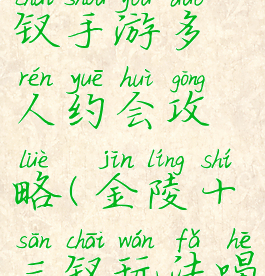 chāi shǒu yóu duō
钗手游多
rén yuē huì gōng
人约会攻
lüè jīn líng shí
略(金陵十
sān chāi wán fǎ hē
三钗玩法喝